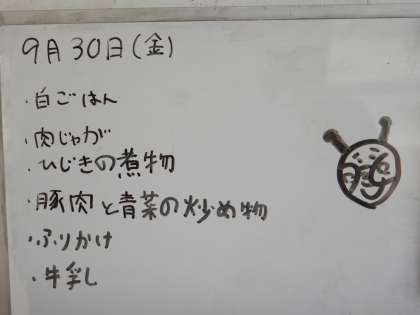 9月30日(金)
・白ごはん
・肉じゃが
・ひじきの煮物
・豚肉と青菜の炒め物
・ふりかけ
・牛乳